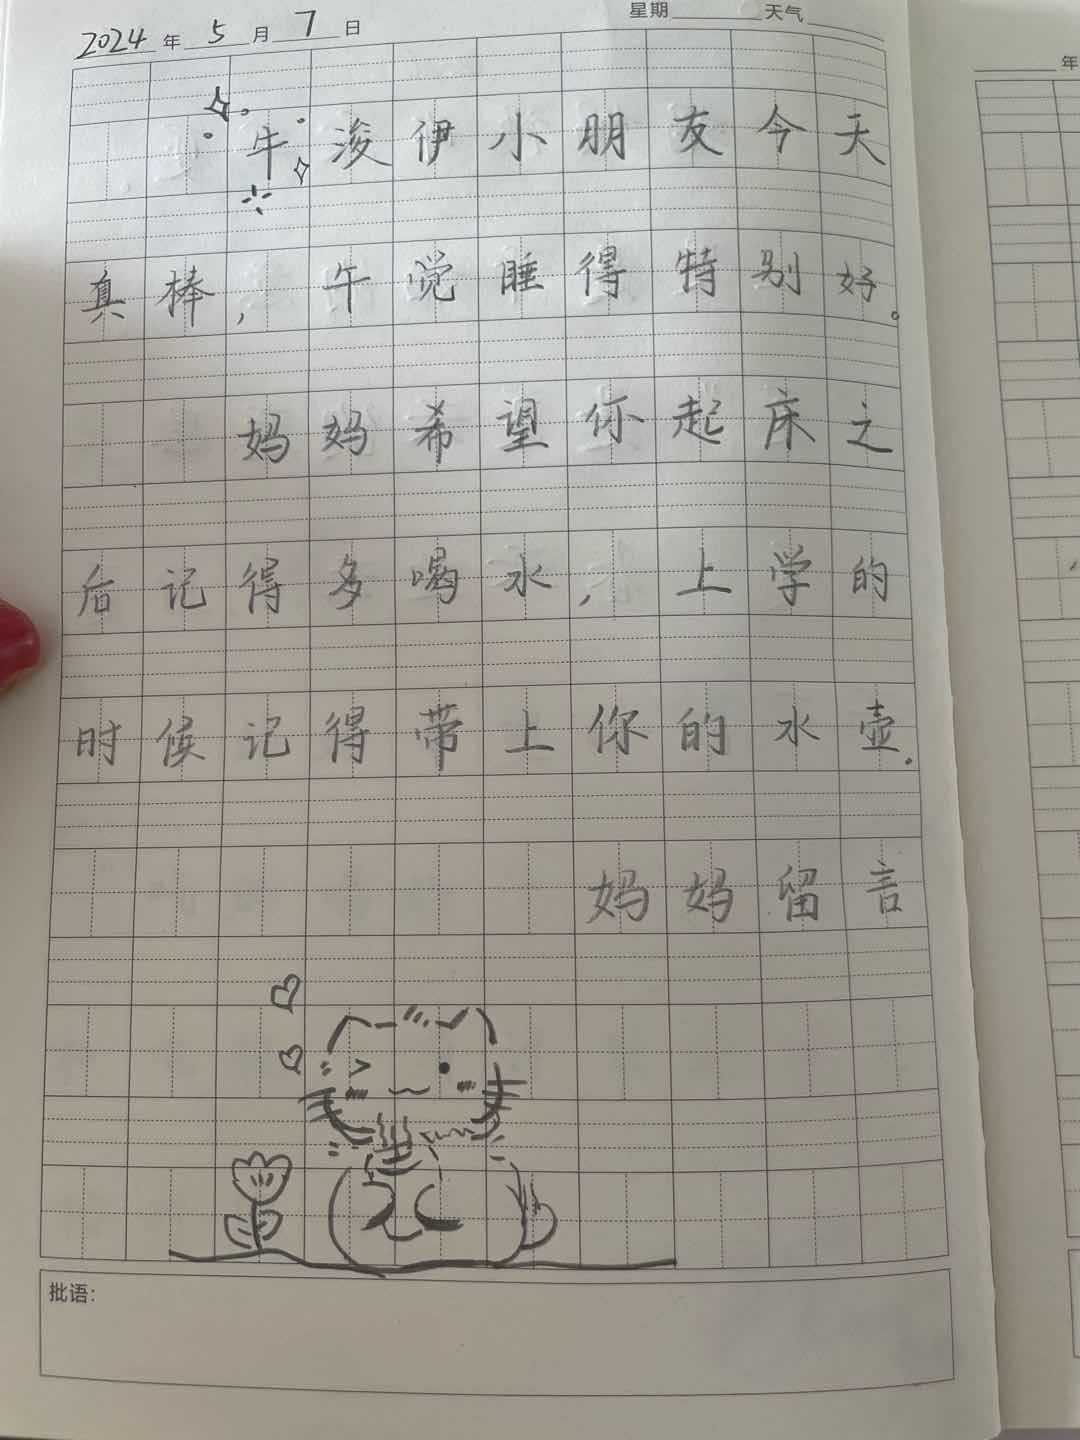 2024年5月7日 星期 天气
年
牛浚伊小朋友今天
真棒，午觉睡得特别好。
妈妈希望你起床之
后记得多喝水，上学的
时候记得带上你的水壶.
妈妈留言
批语：